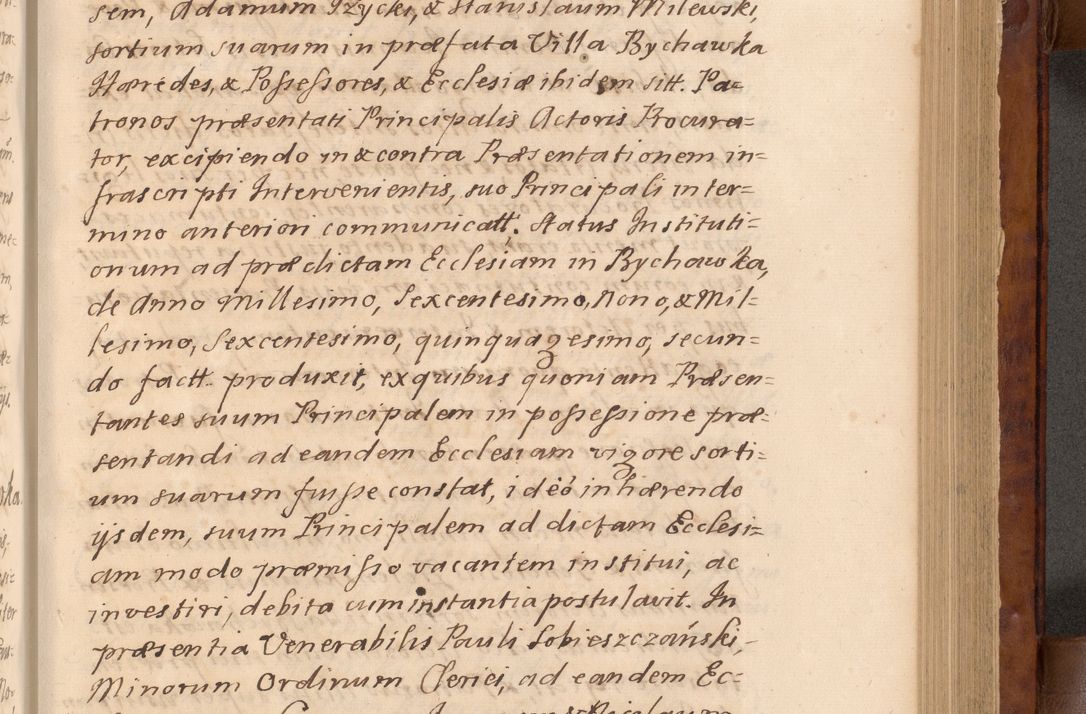 sem, Adamum Izycki, & Stanislaum Milewski,
sortium suarum in præfata Villa Bychawka
Hæredes, & Possessores, & Ecclesiæ ibidem sitt. Pa=
tronos præsentati Principalis Actoris Procura=
tor, excipiendo in & contra Præsentationem in=
frascripti Intervenientis, suo Principali in ter=
mino anteriori communicatt. Status Instituti=
onum ad prædictam Ecclesiam in Bychawka,
de Anno Millesimo, Sexcentesimo, Nono, & Mil=
lesimo, Sexcentesimo, quinquagesimo, secun=
do factt. produxit, ex quibus quoniam Præsen=
tantes suum Principalem in possessione præ=
sentandi ad eandem Ecclesiam vigore sorti=
um suarum fuisse constat, ideó inhærendo
ijsdem, suum Principalem ad dictam Ecclesi=
am modo præmisso vacantem institui, ac
investiri, debita cum instantia postulavit. In
præsentia Venerabilis Pauli Sobieszczański,
Minorum Ordinum Clerici, ad eandem Ec=